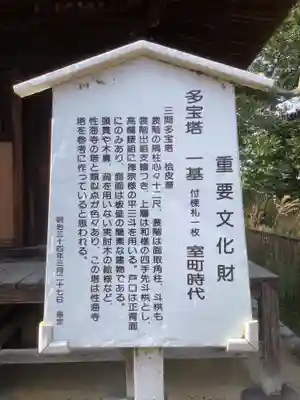 重要文化財
多宝塔 一基 付棟札一枚 室町時代
三間多宝塔 桧皮葺
裳階の隅柱心々十二尺、裳階は面取角柱、斗栱も
裳階出組支輪つき、上層は和様の四手先斗栱とし、
高欄腰組に禅宗様の平三斗を用いる。戸口は正背面
にのみあり、側面は板壁の簡素な建物である。
頭貫や木鼻、肘を用いない実肘木の絵様など、
性海寺の塔と類似点が色々あり、この塔は性海寺
塔を参考に作っていると思われる。
明治三十四年三月二十七日 指定